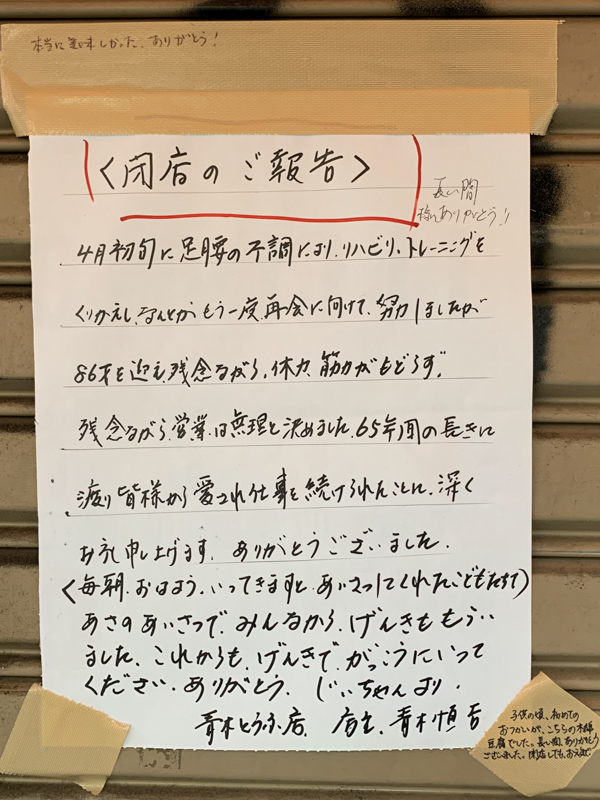 本当に美味しかった、ありがとう!
〈閉店のご報告〉
長い間
ありがとう!!
4月初旬に足腰の不調により、リハビリ、トレーニングを
くりかえし、なんとかもう一度、再会に向けて、努力しましたが
86才を迎え残念ながら、体力、筋力がもどらず。
残念ながら営業は無理と決めました。65年間の長きに
渡り皆様から愛され仕事を続けられたことに、深く
お礼申し上げます。ありがとうございました。
(毎朝、おはよう、いってきますと、あいさつしてくれたこどもたちて)
あさのあいさつで、みんなから、げんきをもらい
ました。これからも、げんきで、がっこうにいって
ください。ありがとう。じいちゃんより。
青木とうふ店、店主、青木慎吾
子供の頃、初めての
おつかいが、こちらの木綿
豆腐でした。長い間、ありがとう
ございました。閉店しても、お元気で